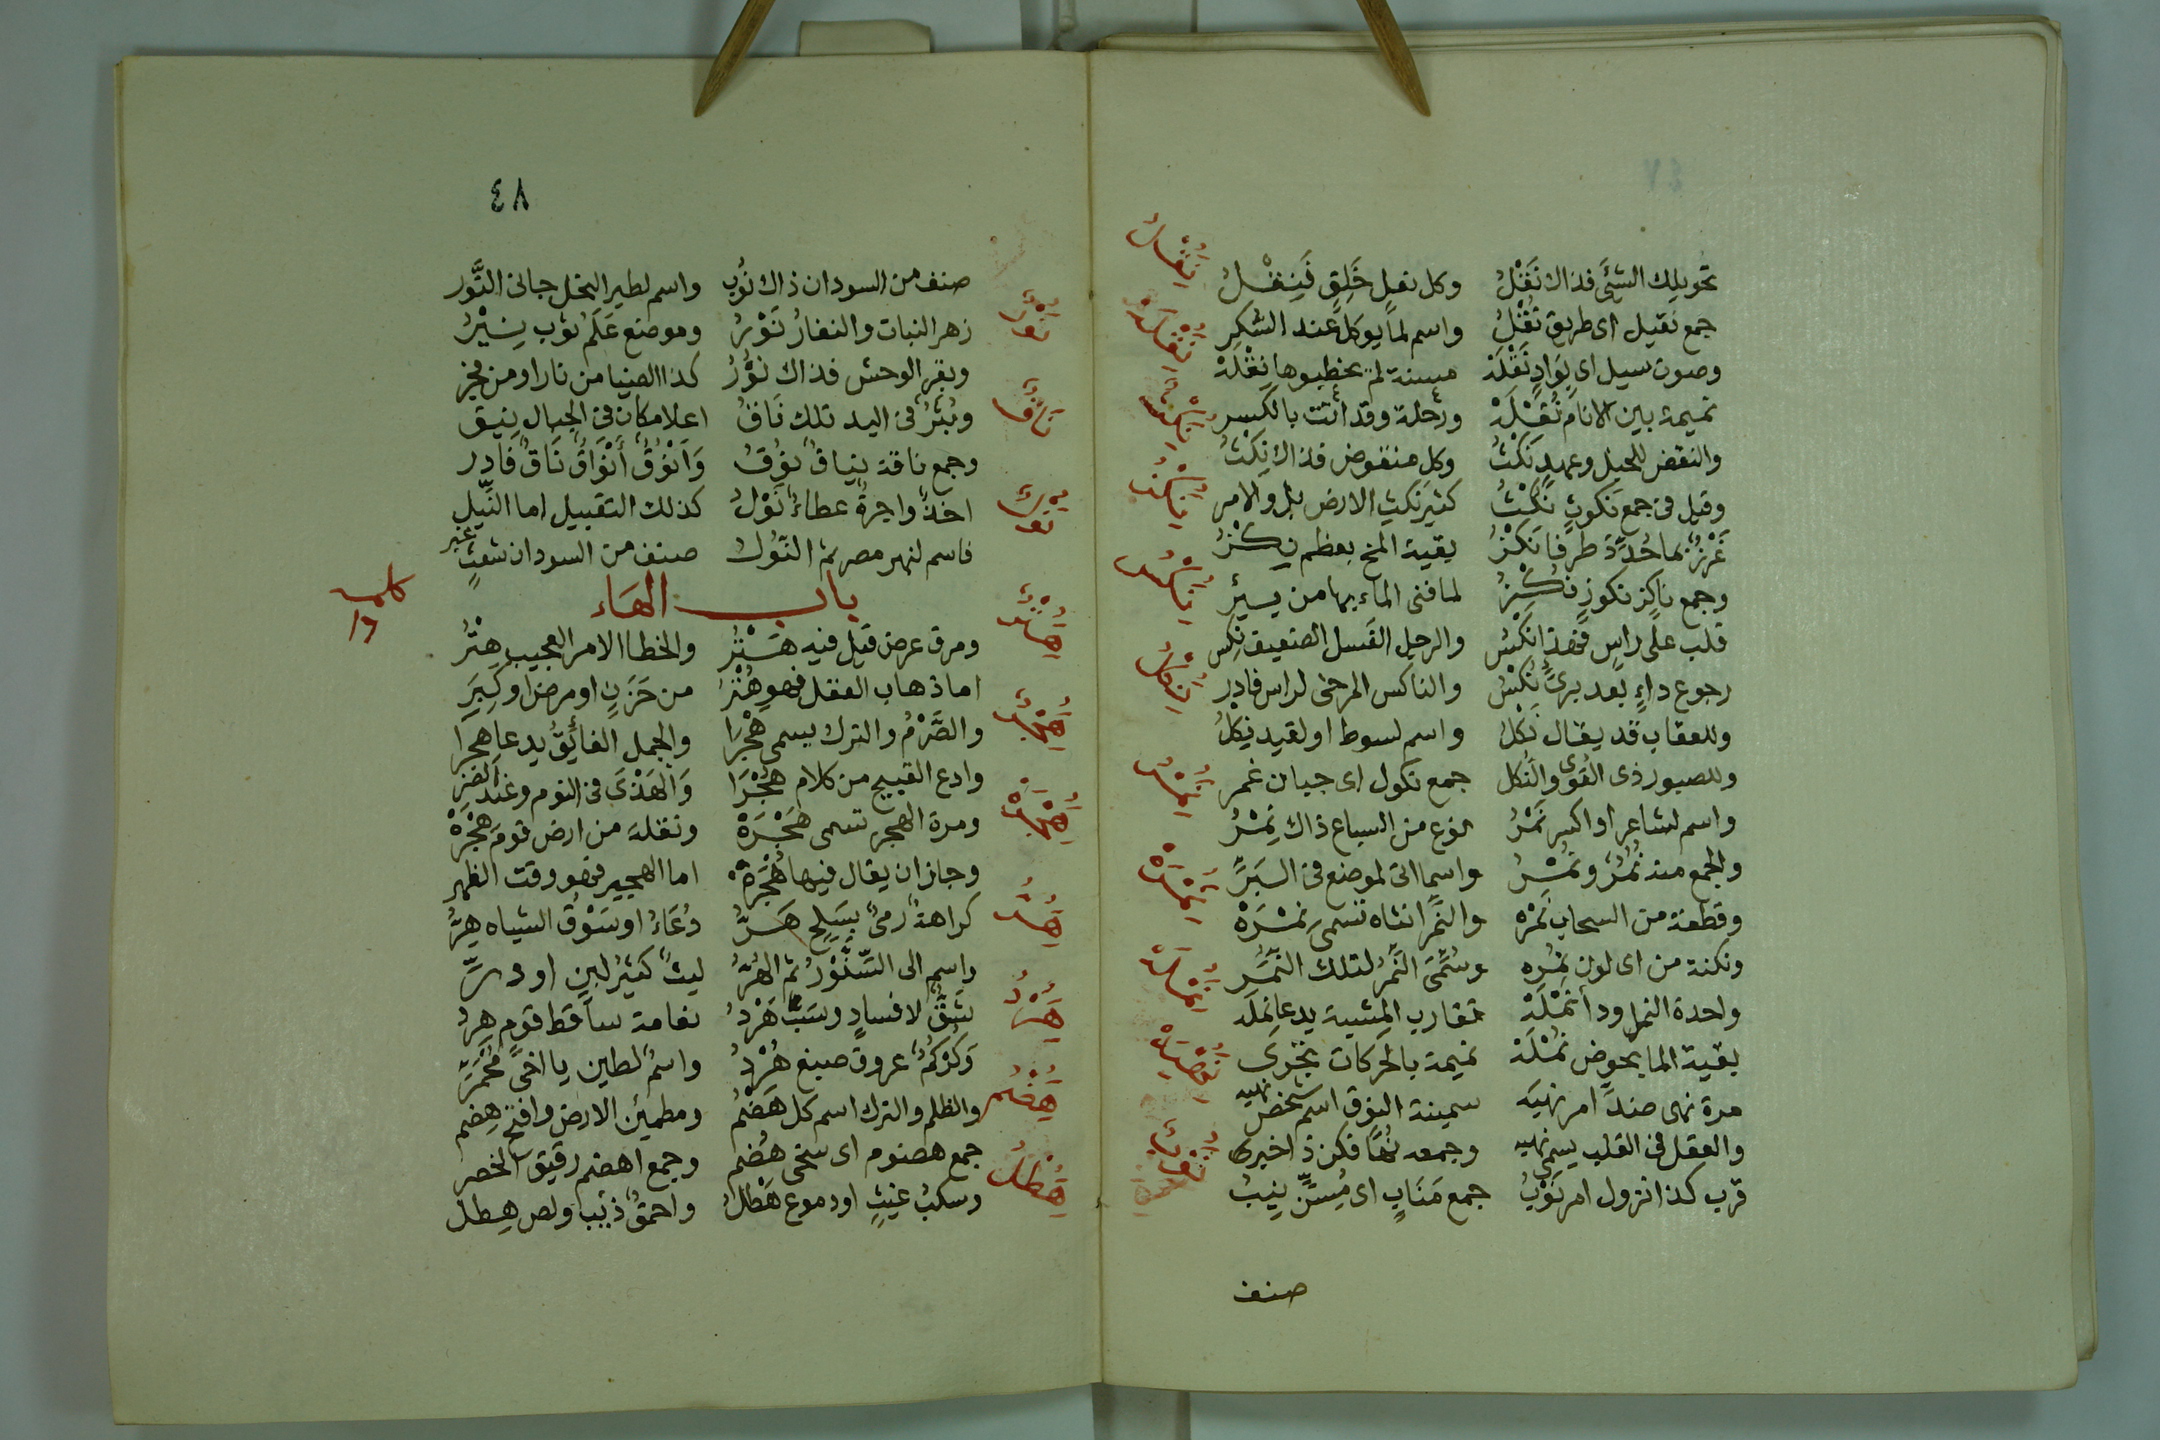 تحويلك الشئَ فذاك نَقْلُ وكل نعل خَلِقٍ فَنِقْلُ
جمع نقيل اى طريق نُقْلُ واسم لما يوكل عند السُكرِ
وصوت سيل اى بَوَادٍ نَقْلَهْ مسنة لم يخطبوها نِقْلَهْ
نميمة بين الانام نُقْلَهْ ورحلة وقد اتت بالكسر
والنقض للحبل وعهدٍ نَكْثُ وكل منقوض فذاك نِكْثُ
وقيل فى جمع نَكوثٍ نُكْثُ كثير نَكثِ الارض بل والامر
غَرْزٌ بها حُدِّدَ طرفا نَكْزُ بقية المخ بعظم نِكْزُ
وجمع ناكز نكوزٍ نُكْزُ لما فنى الماء بها من بيئر
قلب على راسٍ فهذا نَكْسُ والرجل الفَسل الضعيف نِكس
رجوع داءٍ بعد برئٍ نُكْسُ والناكس المرخى لراس فادر
وللعقاب قد يقال نَكل واسم لسوط او لقيد نِكْلُ
وللصبور ذى القُوى والنكل جمع نكول اى جبان غمر
واسم لشاعر او اكسر نَمْرُ نوع من السباع ذاك نِمْرُ
والجمع منه نُمُرٌ ونُمْرُ واسما اتى لموضع فى البَرِّ
وقطعة من السحاب نَمْره والنمر انثاه تسمى نِمْرَهْ
ونكتة من اى لون نُمره وسُمِّىَ النَّمرُ لتلك النُمَر
واحدة النمل ودأ نَمْلَهْ تقارب المشية يدعا نِمله
بقية الما بحوض نُمْلَهْ نميمة بالحركات تجرى
مرة نهى ضدَّ امر نَهيَه سمينة النوق اسم شخص نِهيه
والعقل فى القلب يسمى نُهيه وجمعه نُهًا فكن ذا خبرى
قرب كذا نزول امر نَوْبُ جمع مَنَابٍ اى مُسِنٍّ نِيبُ
صنف
نُقْلُ
نُقْلَهْ
نُكْثُ
نُكْزُ
نُكْسُ
نُكْلُ
نُمْرُ
نُمْرَهْ
نُمْلَهْ
نُهْيَهْ
نُوبُ
٨٤
صنف من السودان ذاك نُوب واسم لطير النحل جانى النَّور
زهر النبات والنفارُ نَوْرُ وموضع عَلَمُ ثوب نِيْرُ
وبقر الوحش فذاك نُوْرُ كذا الضيا من نار او من فجر
وبُثَرٌ فى اليد تلك نَاقُ اعلا مكان فى الجبال نِيق
وجمع ناقة نياق نُوقُ وَاَنْوُقُ أَنْوَاقُ نَاقٌ فادر
اخذٌ واجرةٌ عطاءٌ نَوْلُ كذلك التقبيل اما النِّيل
فاسم لنهر مصر ثم النُّوْل صنف من السودان شعثٍ غبر
باب الهَاء
ومزق عرض قيل فيه هَتْرُ والخطا الامر العجيب هِتْرُ
اما ذهاب العقل فهو هُتْرُ من حَزَنٍ او مرض او كِبَر
والصَّرْمُ والترك يسمى هَجْرَا والجمل الفائقُ يدعا هِجرا
وادع القبيح من كلام هُجْرَا وَالهَذْىَ فى النوم وعند الضر
ومرة الهجر تسمى هَجْرَهْ ونقلة من ارض قوم هِجْرَهْ
وجاز ان يقال فيها هُجْرَهْ اما الهجير فهو وقت الظهر
كراهةٌ رمىٌ بسَلحٍ هَرُّ دُعَاءُ او سَوْقُ الشياه هِرُّ
واسم الى السِّنَّوْرُ ثم الهُرُّ ليثٌ كثيرُ لبنٍ او درِّ
شَقٌ لافسادٍ وسَبٌّ هَرْدُ نعامة ساقط قوم هِردُ
وكُركُمٌ عروق صبغ هُرْدُ واسمٌ لطين يا اخىَّ مُحْمَرِّ
والظلم والترك اسم كل هَضْمُ ومطمئن الارض وافتح هِضم
جمع هضوم اى سخى هُضْمُ وجمع اهضم رقيق الخصر
وسكبُ غيثٍ او دموع هَطْلُ واحمقٌ ذئب ولص هِطل
نُوْرُ
نَاقُ
نُولُ
هُتْرُ
هُجْرُ
هُجْرَهْ
هُرُّ
هُرْدُ
هُضْمُ
هُطْلُ